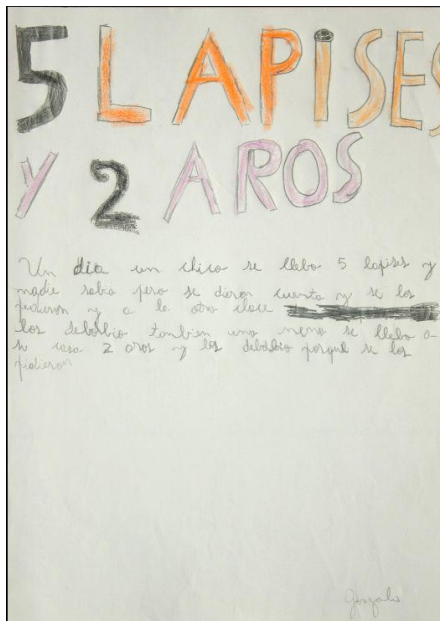 5 LAPiSES
Y 2 AROS
Un dia un chico se llebo 5 lapises y
nadie sabia pero se dieron cuenta y se los
pidieron y a la otra clase
los debolbio tambien una nena se llebo a
su casa 2 aros y los debolbio porque se los
pidieron
Gonzalo